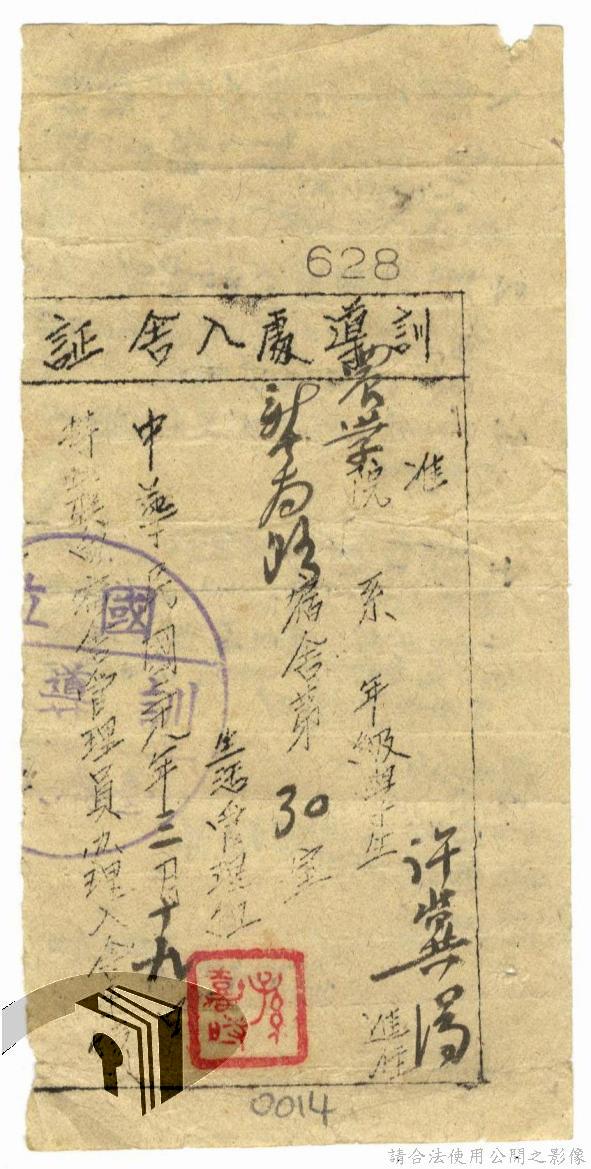 628
訓導處入舍証
准
農学院 系 年級學生 许冀湯 進住
新南路宿舍第30室
生活管理組
中華民國三九年三月十九日
持證向宿舍管理員办理入舍手續
國立
訓導
孫嘉時
0014
請合法使用公開之影像